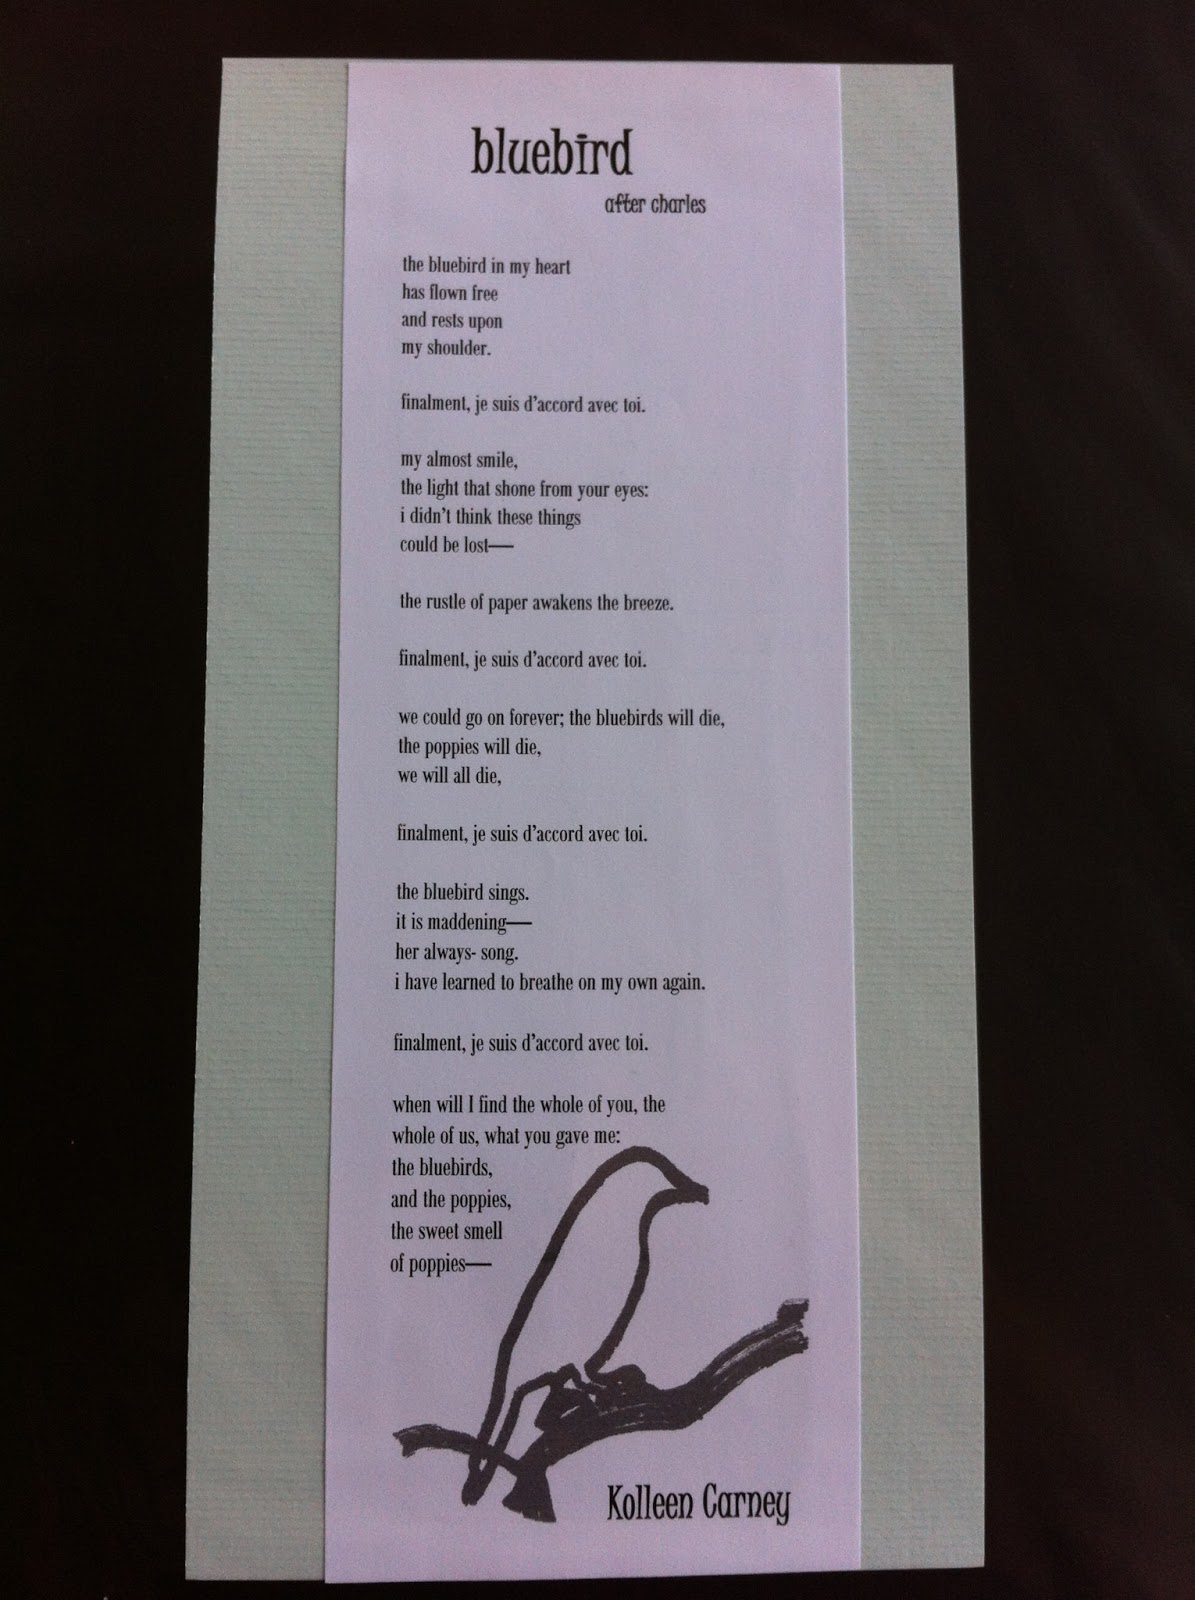 bluebird
after charles
the bluebird in my heart
has flown free
and rests upon
my shoulder.
finalment, je suis d'accord avec toi.
my almost smile,
the light that shone from your eyes:
i didn't think these things
could be lost—
the rustle of paper awakens the breeze.
finalment, je suis d'accord avec toi.
we could go on forever; the bluebirds will die,
the poppies will die,
we will all die,
finalment, je suis d'accord avec toi.
the bluebird sings.
it is maddening—
her always- song.
i have learned to breathe on my own again.
finalment, je suis d'accord avec toi.
when will I find the whole of you, the
whole of us, what you gave me:
the bluebirds,
and the poppies,
the sweet smell
of poppies—
Kolleen Carney